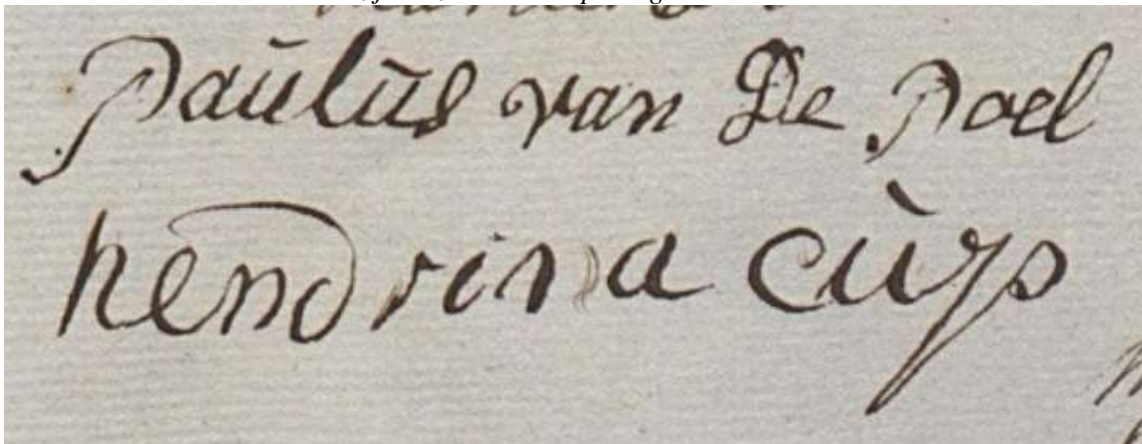 Paulus van De Poel
hendrina cuys